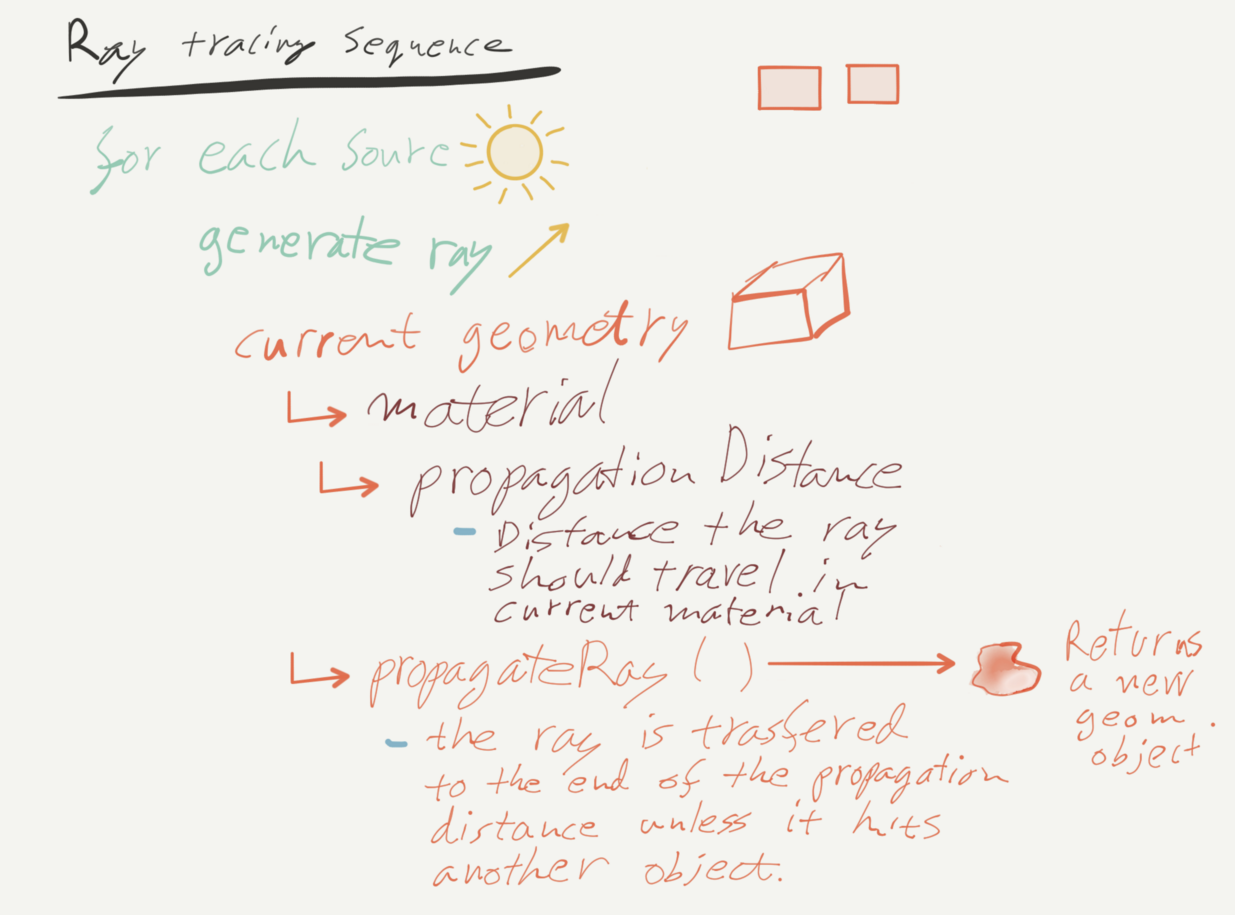 Ray tracing sequence
for each sourc
generate ray
current geometry
material
propagation Distance
- Distance the ray
should travel in
current material
propagateRay ( )
Returns
a new
geom.
object
- the ray is trasfered
to the end of the propagation
distance unless it hits
another object.